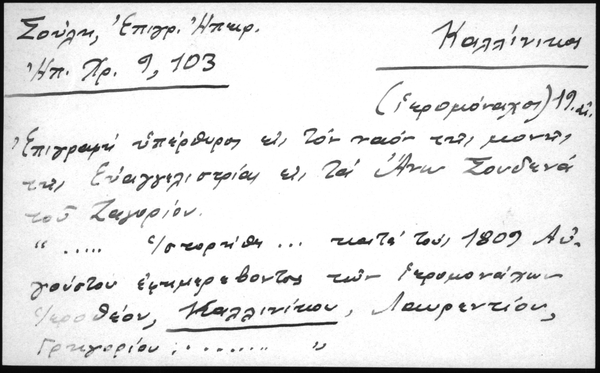 Σούλη, Ἐπιγρ. Ἠπειρ.
Ἠπ. Χρ. 9, 103
Καλλίνικος
(ἱερομόναχος) 19. αἰ.
Ἐπιγραφή ὑπέρθυρος εἰς τόν ναόν της μονης
της Εὐαγγελιστρίας εἰς τά Ἄνω Σουδενά
τοῦ Ζαγορίου.
" ..... ἱστορήθη ... κατά τούς 1809 Αὐ-
γούστου ἐφημερεβοντος των ἱερομονάχων
Ἱεροθέου, Καλλινίκου, Λαυρεντίου,
Γρηγορίου ; ........ "